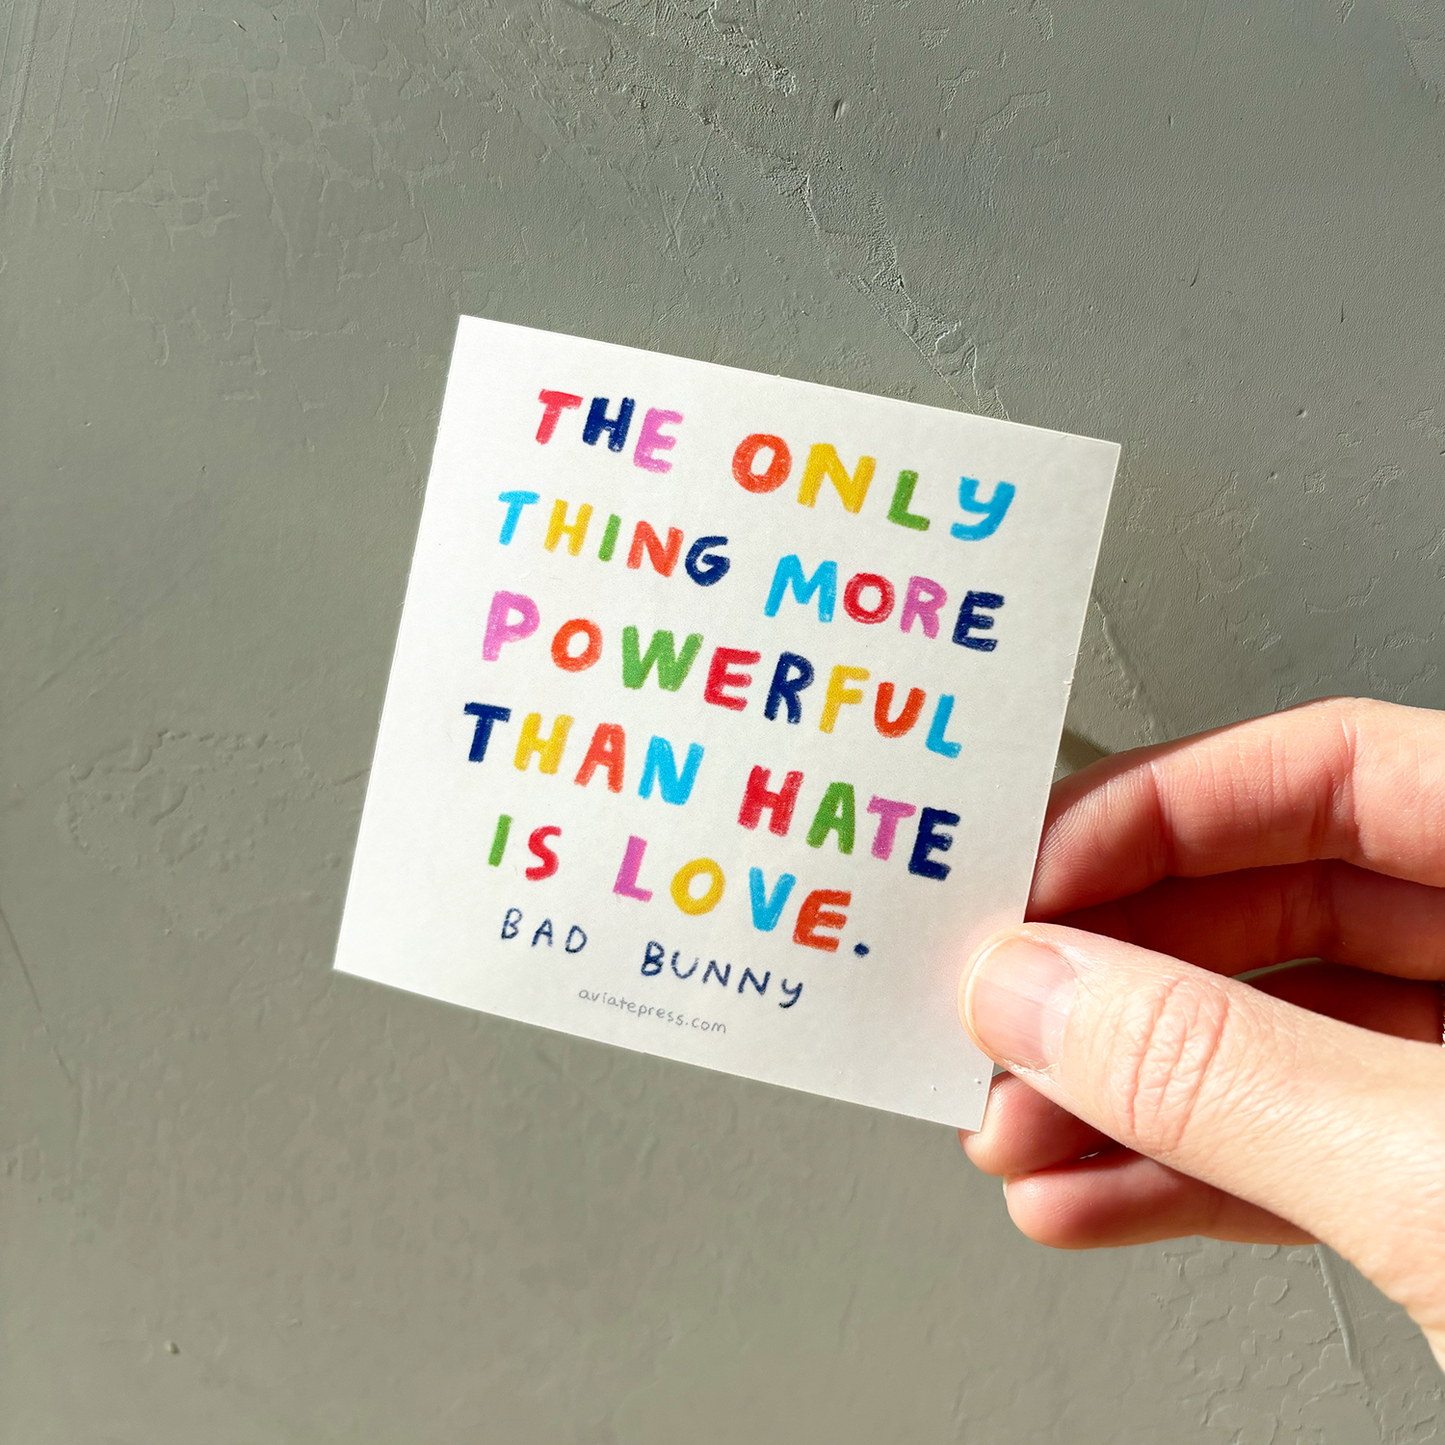 THE ONLY
THING MORE
POWERFUL
THAN HATE
IS LOVE.
BAD BUNNY
aviatepress.com